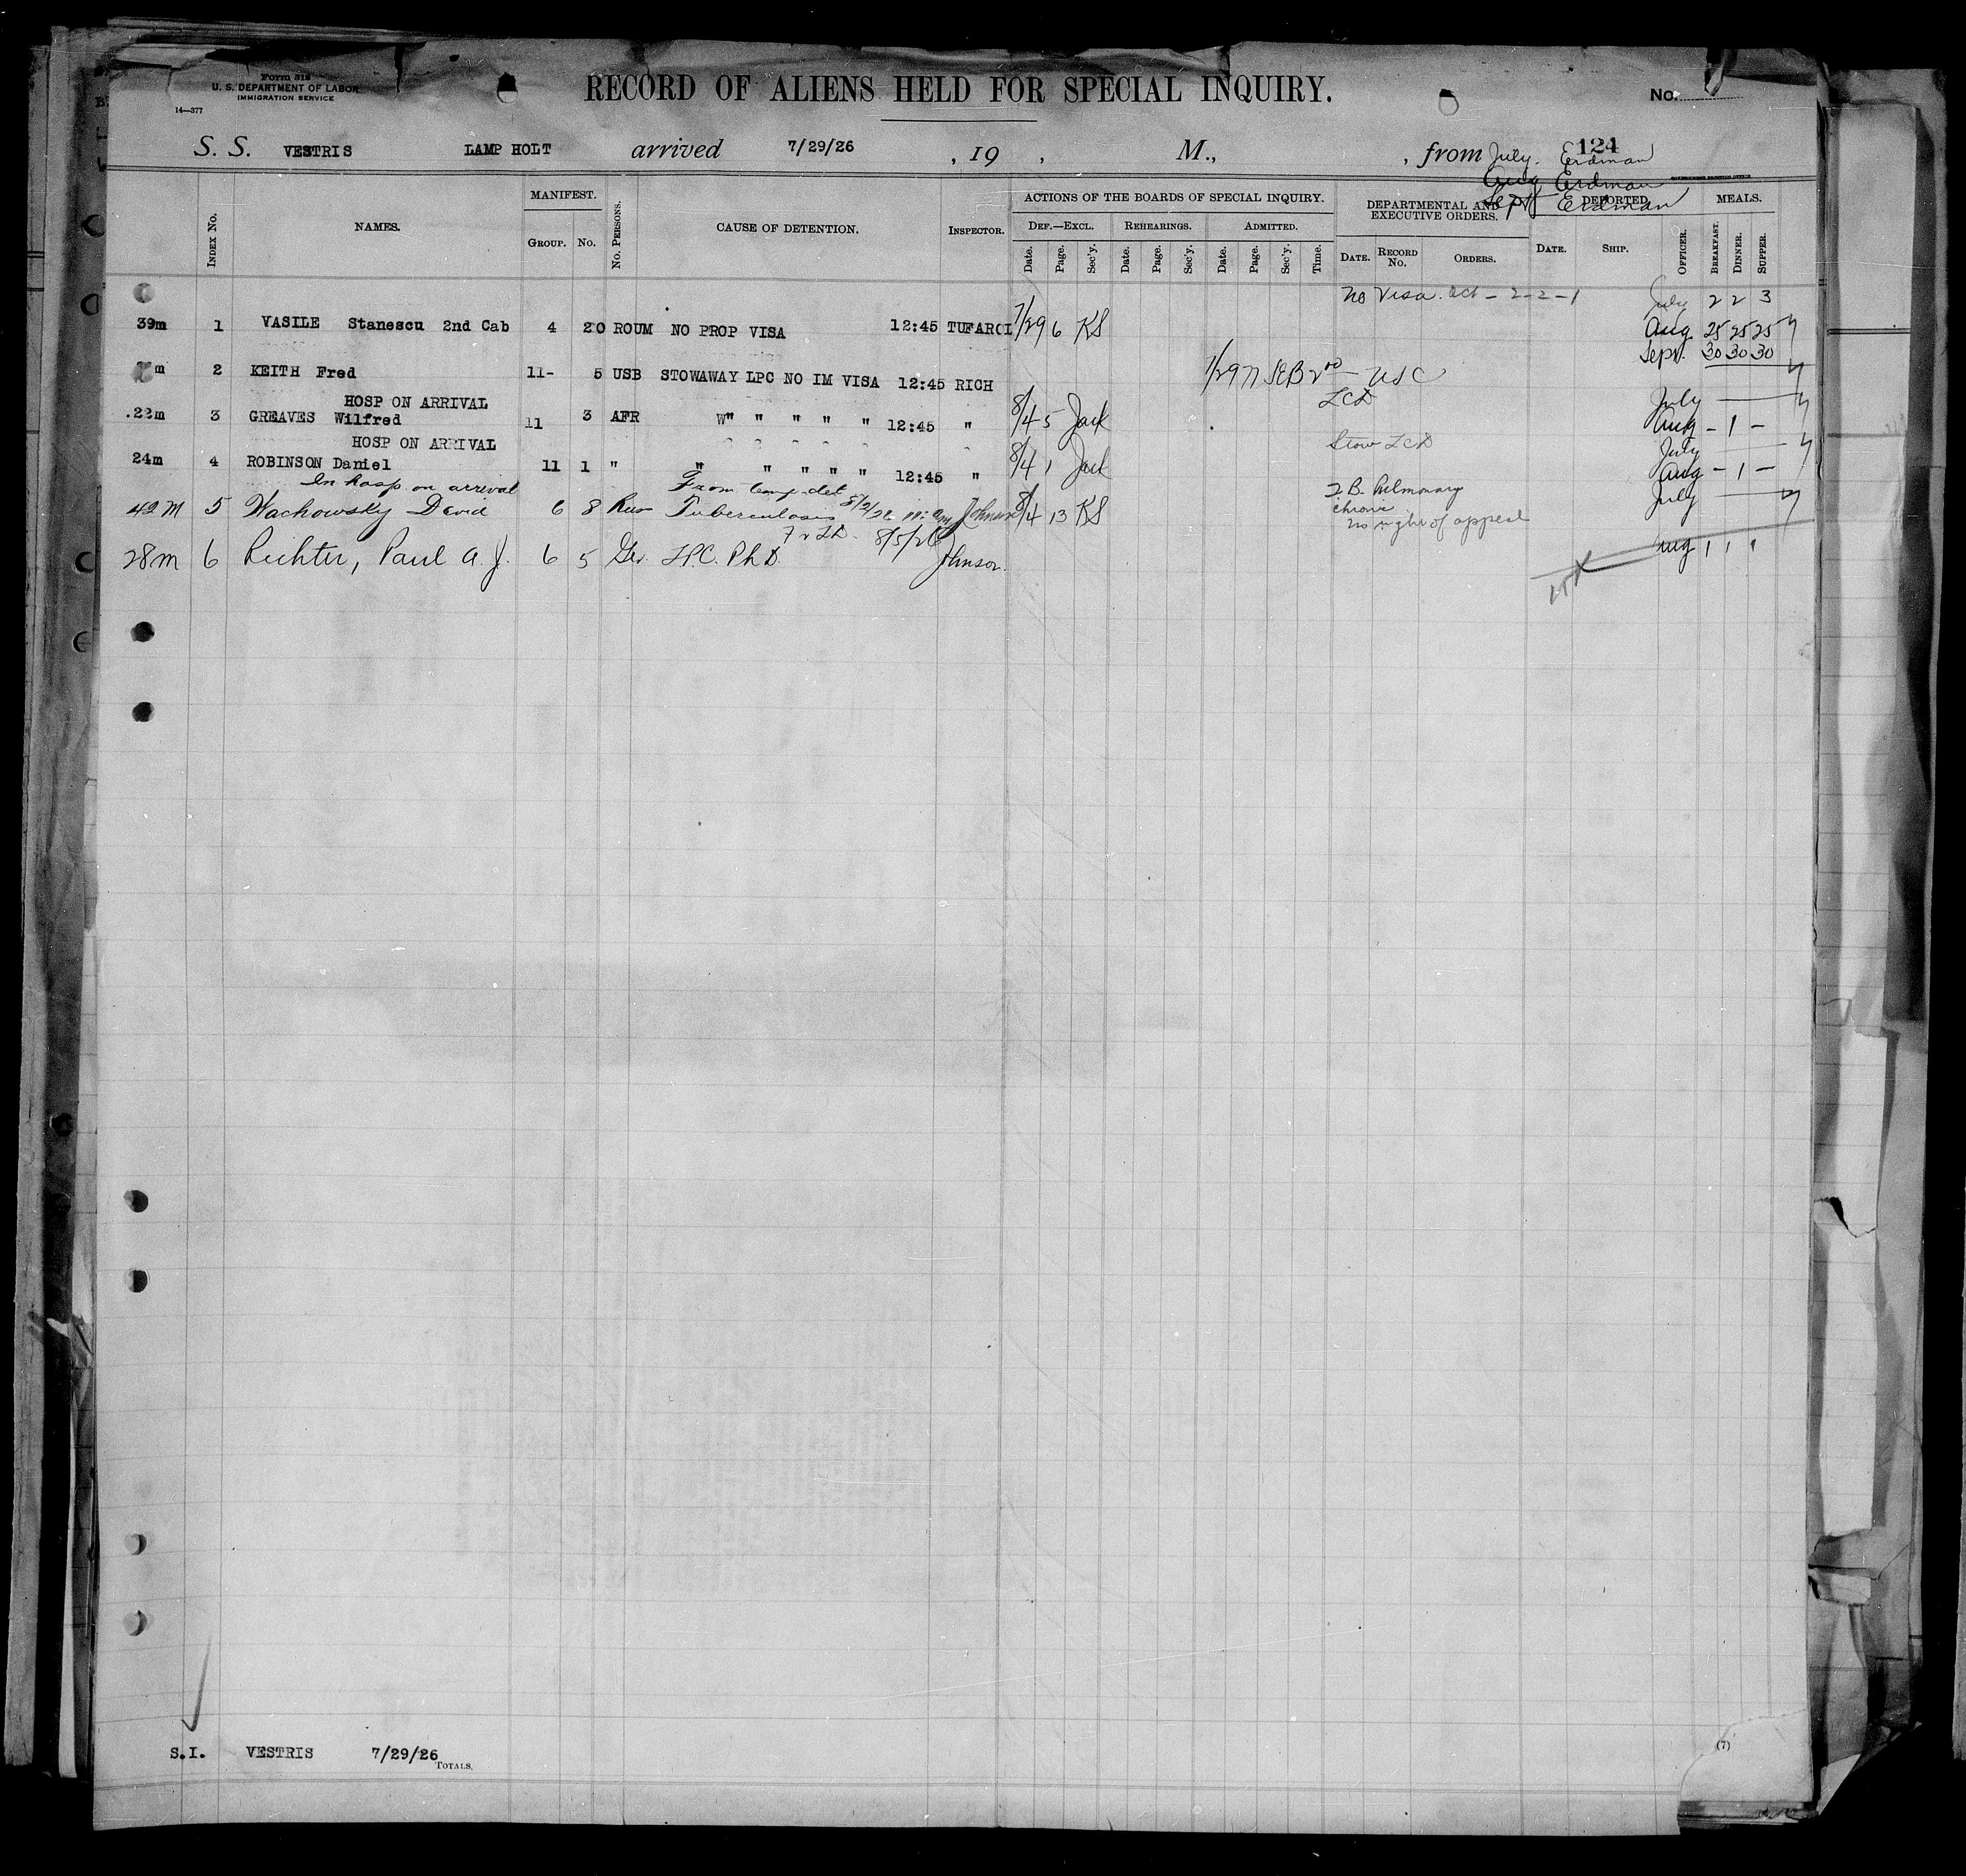 Form 518
U. S. DEPARTMENT OF LABOR
IMMIGRATION SERVICE
14—377
RECORD OF ALIENS HELD FOR SPECIAL INQUIRY.
No.
S. S. VESTRIS LAMP HOLT arrived 7/29/26 , 19 , M., , from
124
July. Erdman
Aug Erdman
Sept Erdman
INDEX No.
NAMES.
MANIFEST.
GROUP. No.
No. PERSONS.
CAUSE OF DETENTION.
INSPECTOR.
ACTIONS OF THE BOARDS OF SPECIAL INQUIRY.
DEF.—EXCL. REHEARINGS. ADMITTED.
Date. Page. Sec'y. Date. Page. Sec'y. Date. Page. Sec'y. Time.
DEPARTMENTAL AND EXECUTIVE ORDERS.
DATE. RECORD No. ORDERS.
DEPORTED.
DATE. SHIP.
OFFICER.
MEALS.
BREAKFAST. DINNER. SUPPER.
no visa. Oct - 2-2-1 July 2 2 3
39m 1 VASILE Stanescu 2nd Cab 4 20 ROUM NO PROP VISA 12:45 TUFAROI 7/29 6 KS Aug 25 25 25
Sept. 30 30 30
m 2 KEITH Fred 11- 5 USB STOWAWAY LPC NO IM VISA 12:45 RICH 7/29 7 SEB 2 00 USC
HOSP ON ARRIVAL LCD July
.22m 3 GREAVES Wilfred 11 3 AFR W" " " " " 12:45 " 8/4 5 Jack Aug - 1 -
HOSP ON ARRIVAL Stow LCD July
24m 4 ROBINSON Daniel 11 1 " " " " " " 12:45 " 8/4 1 Jack Aug - 1 -
In hosp on arrival From temp det T B. Pulmonary July
42 M 5 Wachowsky David 6 8 Rus Tuberculosis 8/2/26 Johnson 8/4 13 KS chronic
no right of appeal
8/5/26
28m 6 Richter, Paul A. J. 6 5 Ger. L.P.C. Ph D. Johnson. Aug 1 1 1
S.I. VESTRIS 7/29/26
TOTALS.
(7)